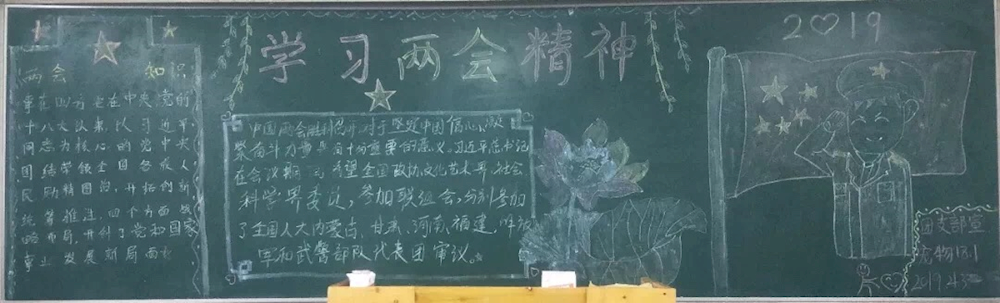 学习两会精神
2019
两会 知识
事在四方 要在中央 党的
十八大以来,以习近平
同志为核心的党中央
团结带领全国各族人
民励精图治,开拓创新
统筹推进 四个方面 战
略布局,开创了党和国家
事业 发展新局面
中国两会胜利召开 对于坚定中国信心、凝
聚奋斗力 有十分重要的意义,习近平总书记
在会议期间 看望全国政协文化艺术界、社会
科学界委员,参加联组会,分别参加
了全国人大内蒙古、甘肃、河南、福建、解放
军和武警部队代表团审议。
团支部宣
2019.4.3